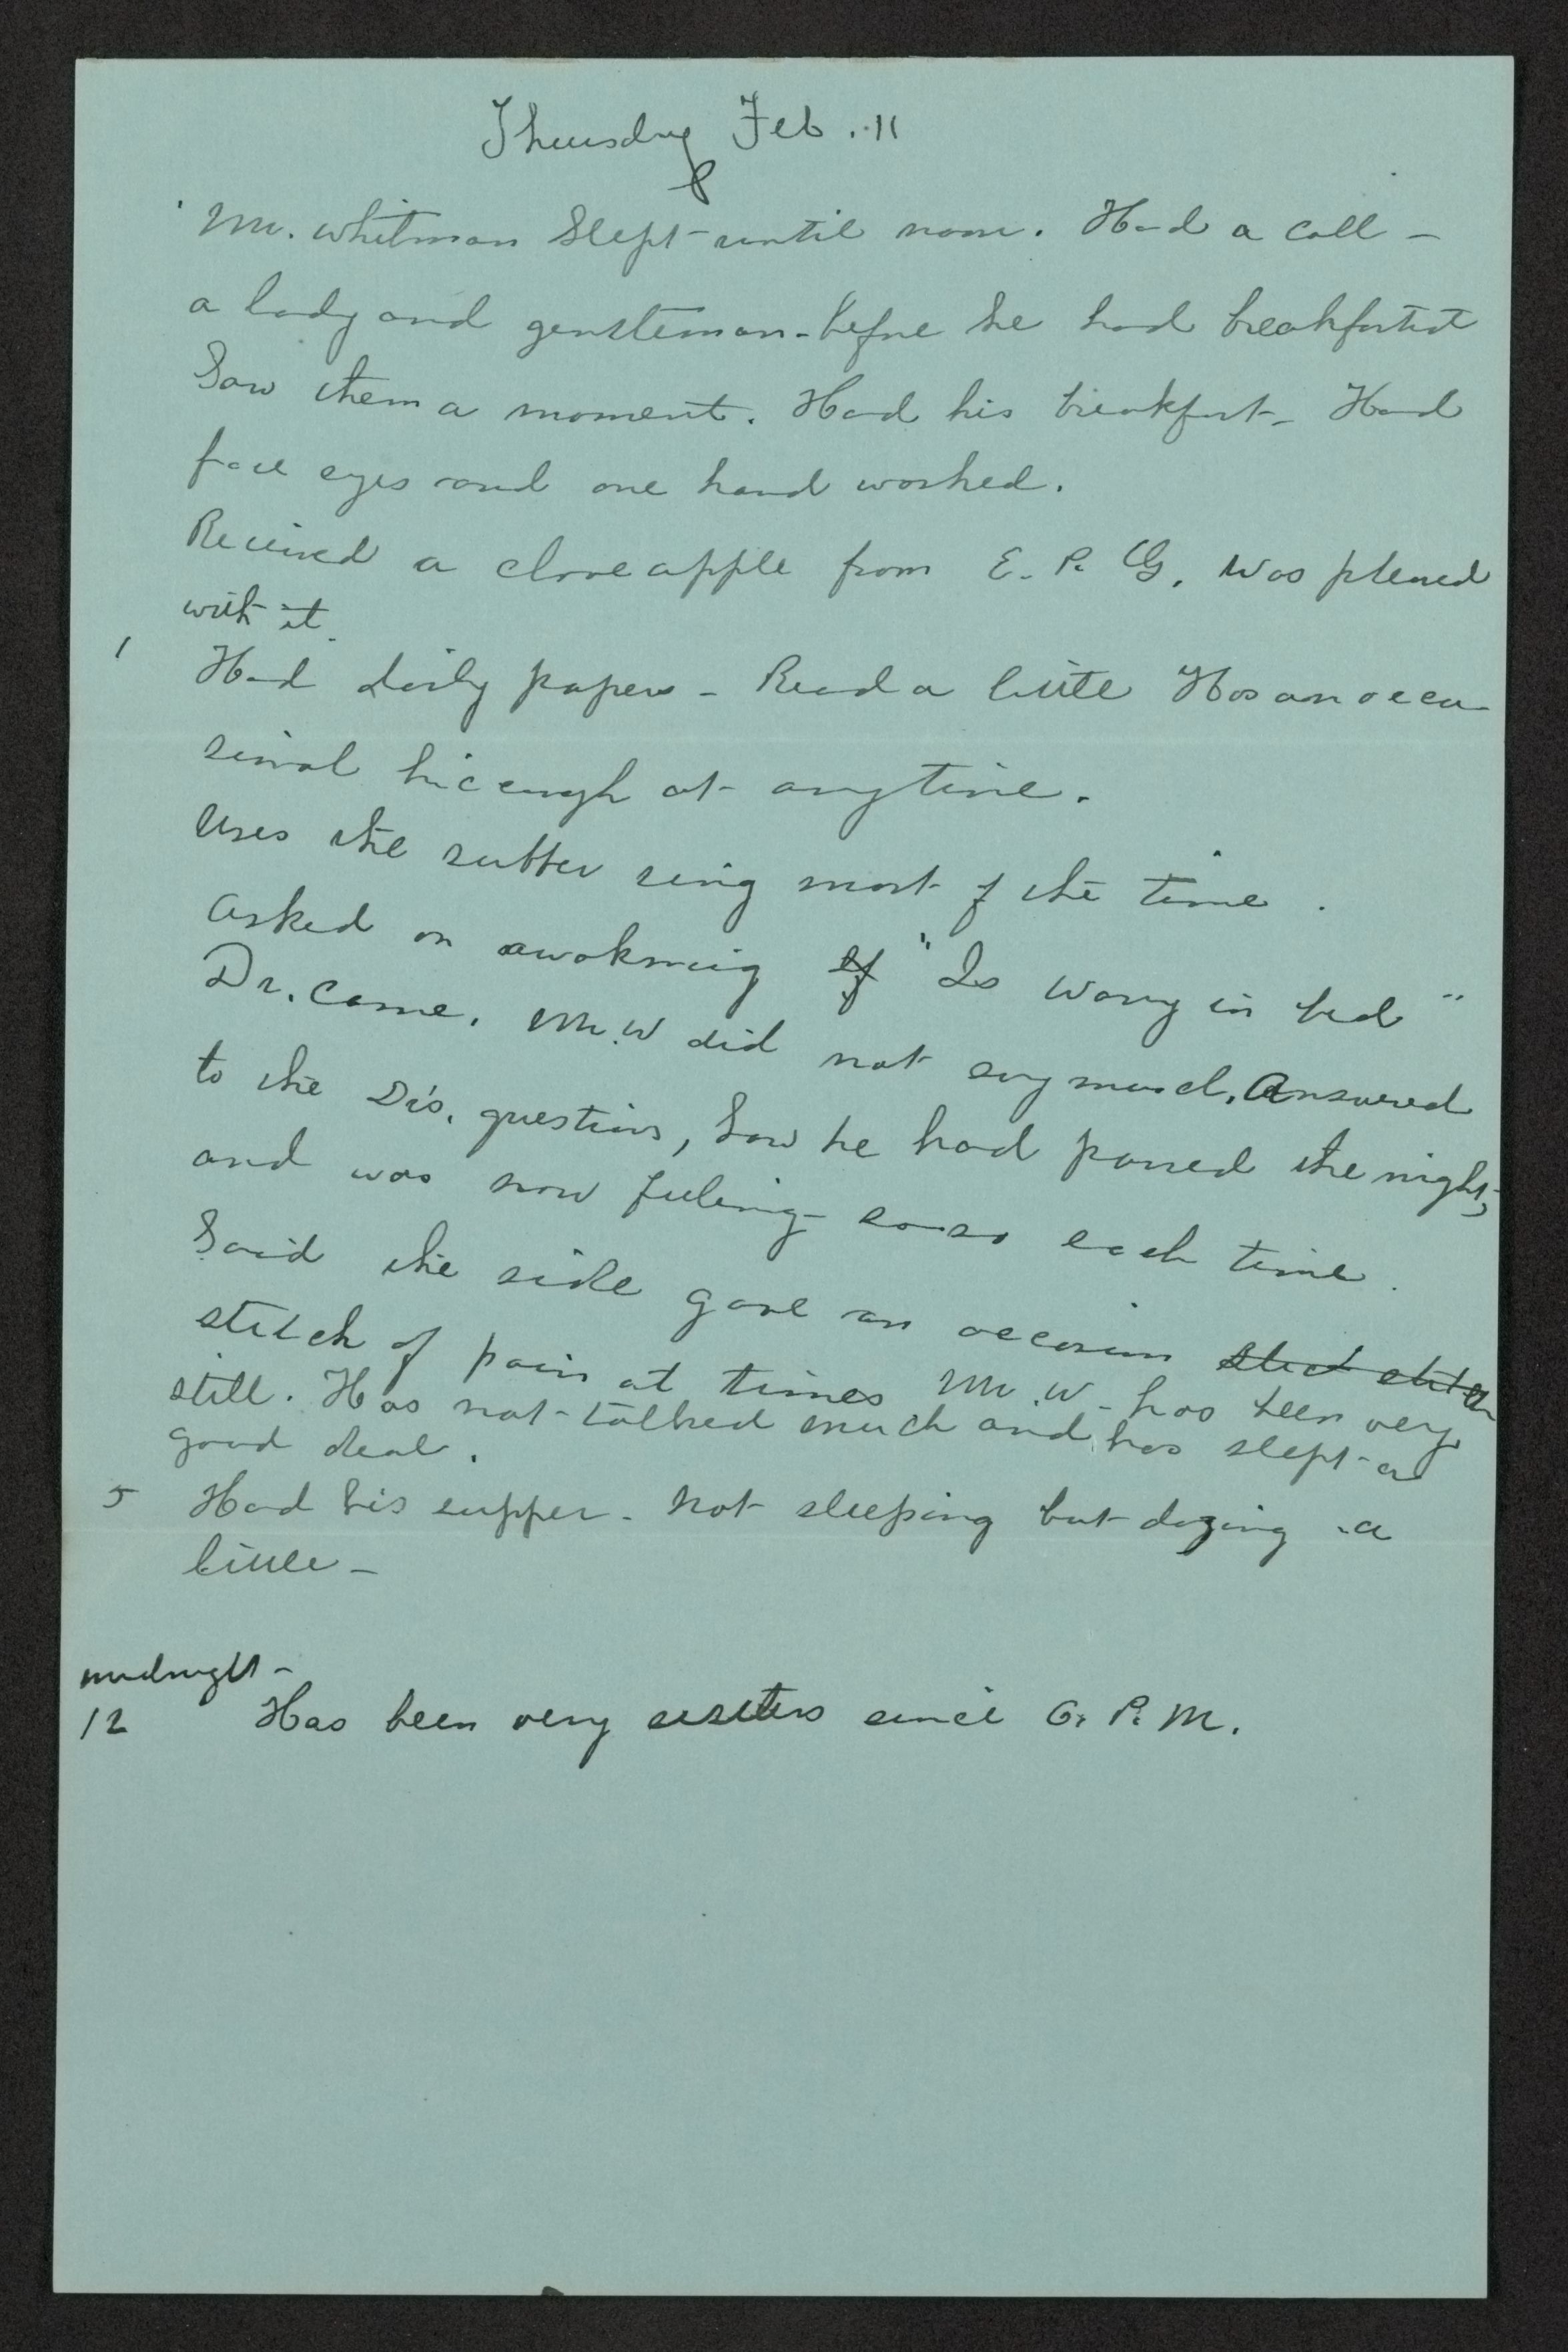 Thursday Feb. 11
Mr. Whitman Slept until noon. Had a call -
a lady and genstleman - before he had breakfasted
Saw them a moment. Had his breakfast - Had
face eyes and one hand washed.
Received a clove apple from E. P. G. Was pleased
with it.
1 Had daily papers - Read a little Has an occa-
sional hiccough at anytime.
Uses the rubber ring most of the time.
Asked on awakening If "Is Warry in bed"
Dr. Came. Mr. W did not say much. Answered
to the Drs. questions, how he had passed the night,
and was now feeling - so-so each time.
Said the side gave an occasion
stitch of pain at times Mr. W - has been very
still. Has not talked much and has slept a
good deal.
5 Had his supper - Not sleeping but dozing - a
little -
midnight -
12 Has been very restless since 6. P. M.